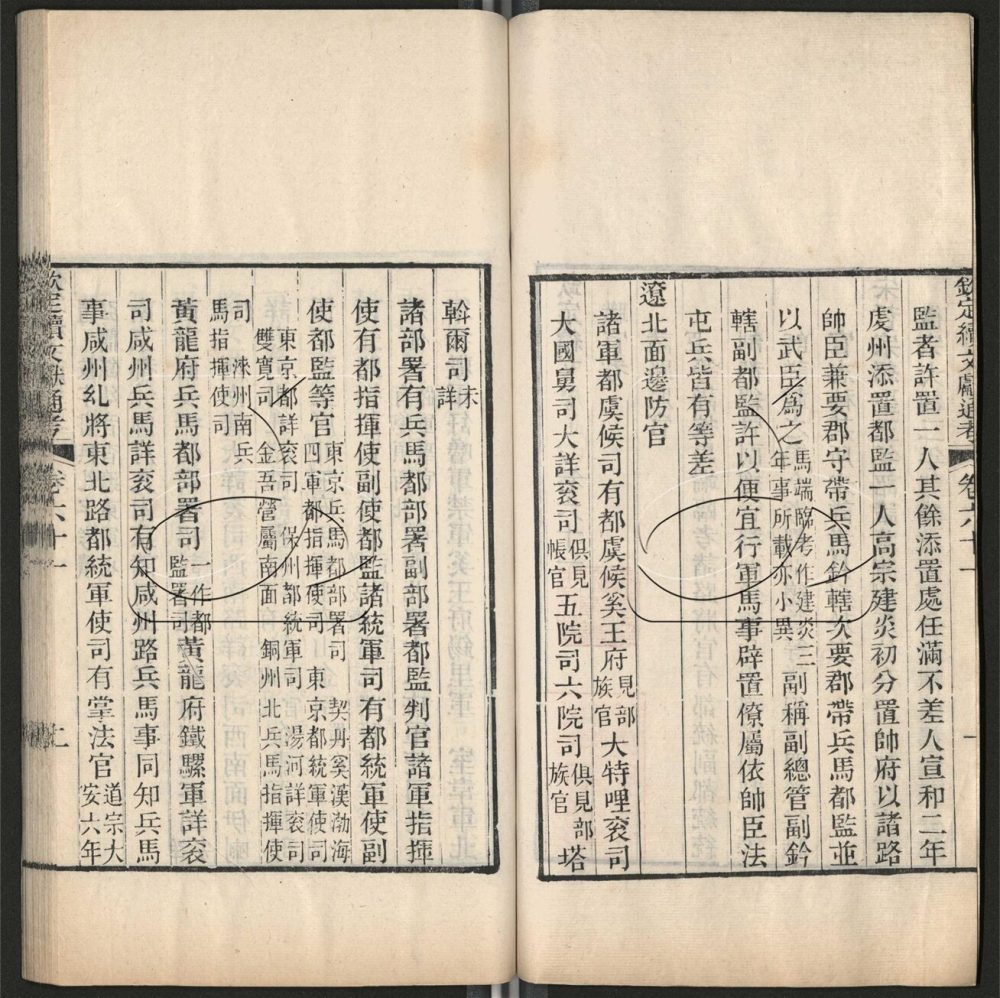 欽定續文獻通考 卷六十一
監者許置一人其餘添置處任滿不差人宣和二年
虔州添置都監一人高宗建炎初分置帥府以諸路
帥臣兼要郡守帶兵馬鈐轄次要郡帶兵馬都監並
以武臣爲之馬端臨考作建炎三年事所載亦小異副稱副總管副鈐
轄副都監許以便宜行軍馬事辟置僚屬依帥臣法
屯兵皆有等差
遼北面邊防官
諸軍都虞候司有都虞候奚王府見部族官大特哩袞司
大國舅司大詳袞司俱見帳官五院司六院司俱見部族官塔
斡爾司未詳
諸部署有兵馬都部署副部署都監判官諸軍指揮
使有都指揮使副使都監諸統軍司有都統軍使副
使都監等官東京兵馬都部署司 契丹奚漢渤海四軍都指揮使司 東京都統軍使司
東京都詳袞司 保州都統軍司 湯河詳袞司雙寬司 金吾營屬南面 銅州北兵馬指揮使
司 淶州南兵馬指揮使司
黃龍府兵馬都部署司一作都監署司黃龍府鐵驪軍詳袞
司咸州兵馬詳袞司有知咸州路兵馬事同知兵馬
事咸州糺將東北路都統軍使司有掌法官道宗大安六年
欽定續文獻通考 卷六十一